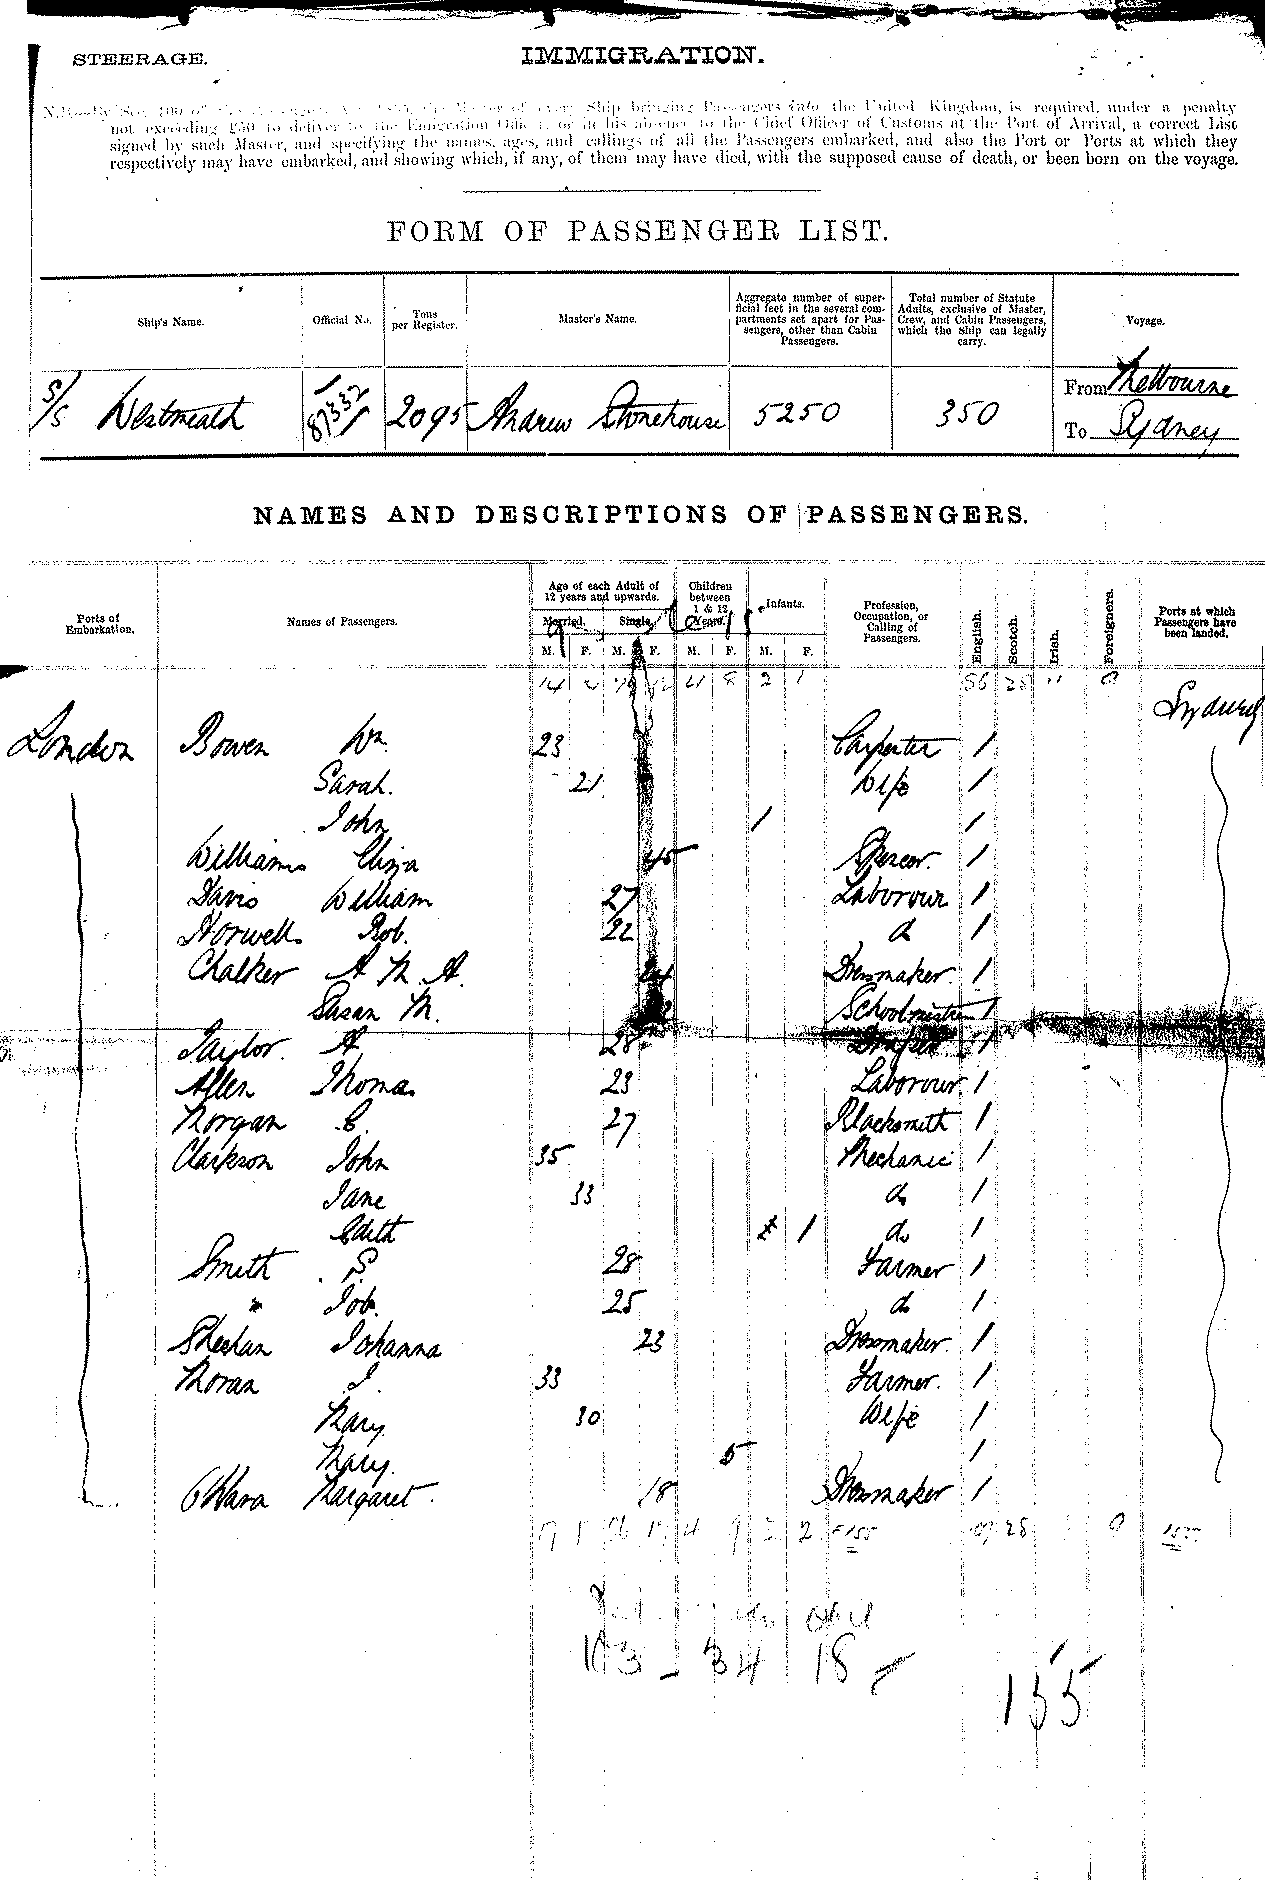 STEERAGE.
IMMIGRATION.
Ship bringing Passengers into the United Kingdom, is required, under a penalty
not exceeding £50 to deliver to the Emigration Officer, or in his absence to the Chief Officer of Customs at the Port of Arrival, a correct List
signed by such Master, and specifying the names, ages, and callings of all the Passengers embarked, and also the Port or Ports at which they
respectively may have embarked, and showing which, if any, of them may have died, with the supposed cause of death, or been born on the voyage.
FORM OF PASSENGER LIST.
Ship's Name. Official No. Tons per Register. Master's Name. Aggregate number of superficial feet in the several compartments set apart for Passengers, other than Cabin Passengers. Total number of Statute Adults, exclusive of Master, Crew, and Cabin Passengers, which the Ship can legally carry. Voyage.
S/S Westmeath 87332 2095 Andrew Stonehouse 5250 350 From Melbourne
To Sydney
NAMES AND DESCRIPTIONS OF PASSENGERS.
Ports of Embarkation. Names of Passengers. Age of each Adult of 12 years and upwards. Children between 1 & 12 Years. Infants. Profession, Occupation, or Calling of Passengers. English. Scotch. Irish. Foreigners. Ports at which Passengers have been landed.
Married. Single.
M. F. M. F. M. F. M. F.
Sydney
London Bowen Wm. 23 Carpenter 1
Sarah. 21 Wife 1
John 1 1
Williams Eliza 45 1
Davis William 27 Laborour 1
Norwell Rob. 22 do 1
Chalker A M A. 24 Dressmaker. 1
Susan M. Schoolmistress 1
Taylor A 28 1
Allen Thomas 23 Laborour 1
Morgan C. 27 Blacksmith 1
Clarkson John 35 Mechanic 1
Jane 33 do 1
Edith 1 do 1
Smith S. 28 Farmer 1
" Job. 25 do 1
Sheehan Johanna 23 Dressmaker. 1
Moran J. 33 Farmer. 1
Mary 30 Wife 1
Mary. 5 1
O'Hara Margaret. 18 Dressmaker 1
103 - 34 18
155